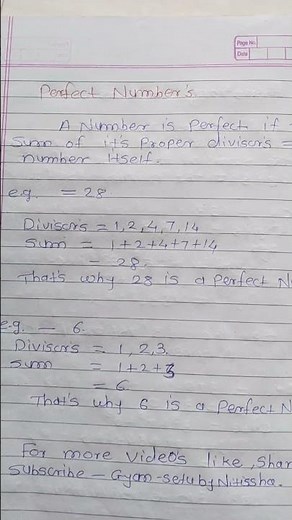 Page No.
Date
Perfect Number's
A Number is perfect if
Sum of it's Proper divisors =
number Itself.
e.g. = 28
Divisors = 1, 2, 4, 7, 14
Sum = 1+2+4+7+14
= 28.
That's why 28 is a Perfect N
e.g. — 6.
Divisors = 1, 2, 3.
Sum = 1+2+3
= 6
That's why 6 is a Perfect N
For more video's like, Shar
Subscribe — Gyan-setu by Nitissha.